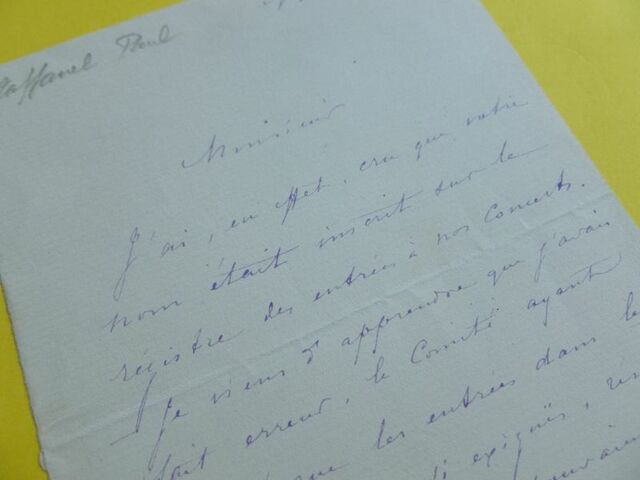 Taffanel Paul
Monsieur
J'ai, en effet, cru que votre
nom était inscrit sur le
régistre des entrées à nos concerts.
Je viens d'apprendre que j'avais
fait erreur, le Comité ayant
que les entrées dans le
si exiguës,